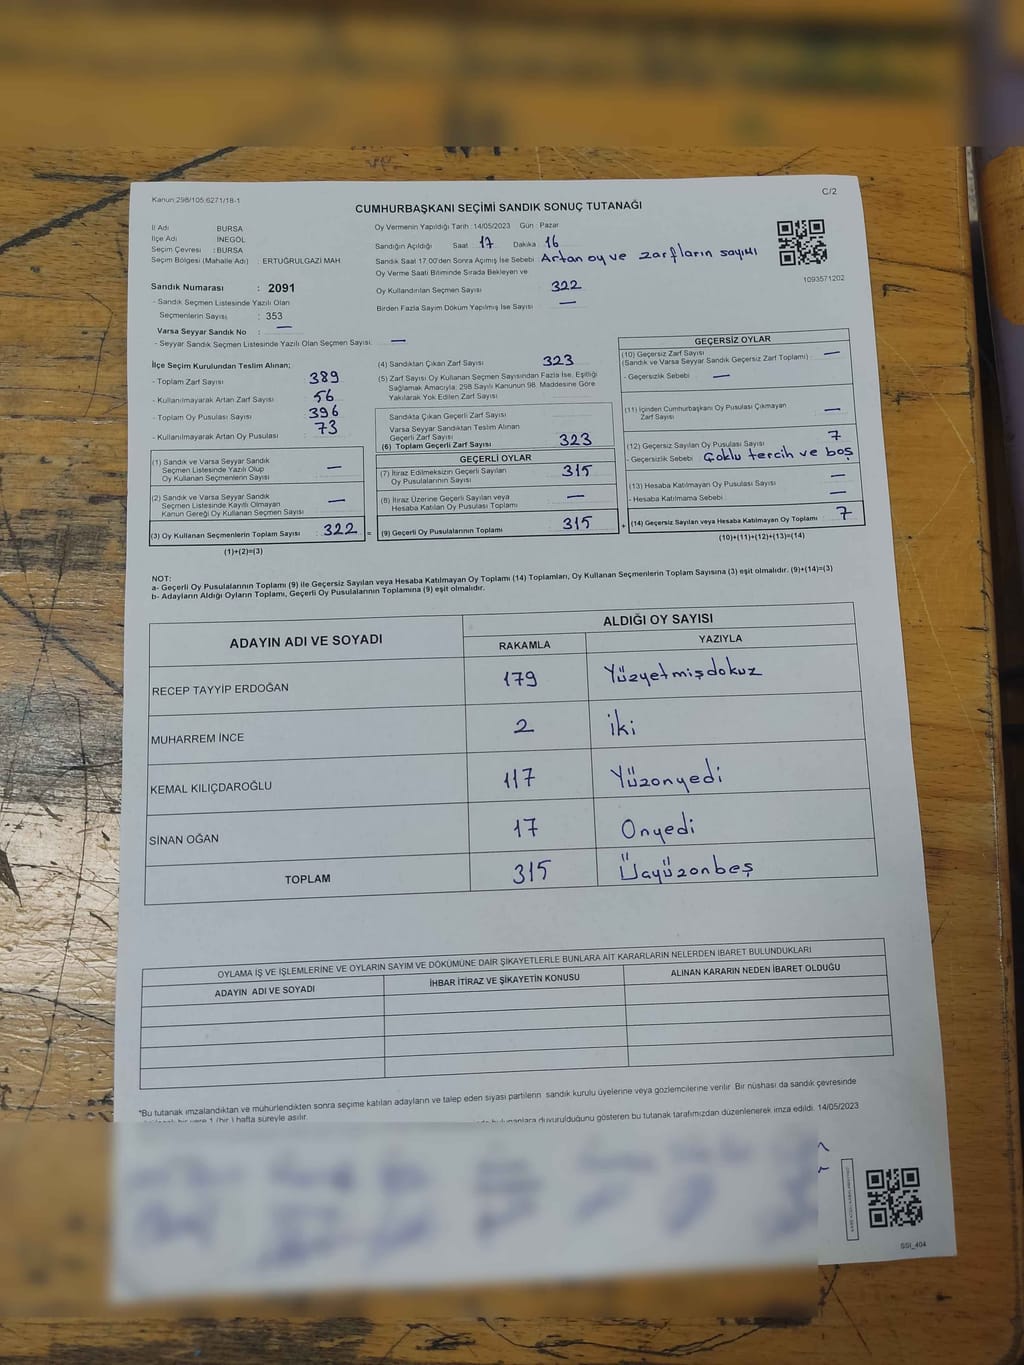 Kanun:298/105;6271/18-1
C/2
CUMHURBAŞKANI SEÇİMİ SANDIK SONUÇ TUTANAĞI
İl Adı BURSA
İlçe Adı İNEGÖL
Seçim Çevresi : BURSA
Seçim Bölgesi (Mahalle Adı) : ERTUĞRULGAZİ MAH.
Oy Vermenin Yapıldığı Tarih :14/05/2023 Gün : Pazar
Sandığın Açıldığı Saat 17 Dakika 16
Sandık Saat 17.00'den Sonra Açımış İse Sebebi Artan oy ve zarfların sayımı
Oy Verme Saati Bitiminde Sırada Bekleyen ve
Oy Kullandırılan Seçmen Sayısı 322
Birden Fazla Sayım Döküm Yapılmış İse Sayısı —
1093571202
Sandık Numarası : 2091
- Sandık Seçmen Listesinde Yazılı Olan
Seçmenlerin Sayısı : 353
Varsa Seyyar Sandık No : —
- Seyyar Sandık Seçmen Listesinde Yazılı Olan Seçmen Sayısı: —
İlçe Seçim Kurulundan Teslim Alınan;
- Toplam Zarf Sayısı 389
- Kullanılmayarak Artan Zarf Sayısı 56
- Toplam Oy Pusulası Sayısı 396
- Kullanılmayarak Artan Oy Pusulası 73
(1) Sandık ve Varsa Seyyar Sandık
Seçmen Listesinde Yazılı Olup
Oy Kullanan Seçmenlerin Sayısı —
(2) Sandık ve Varsa Seyyar Sandık
Seçmen Listesinde Kayıtlı Olmayan
Kanun Gereği Oy Kullanan Seçmen Sayısı —
(3) Oy Kullanan Seçmenlerin Toplam Sayısı : 322 =
(1)+(2)=(3)
(4) Sandıktan Çıkan Zarf Sayısı 323
(5) Zarf Sayısı Oy Kullanan Seçmen Sayısından Fazla İse, Eşitliği
Sağlamak Amacıyla; 298 Sayılı Kanunun 98. Maddesine Göre
Yakılarak Yok Edilen Zarf Sayısı
Sandıkta Çıkan Geçerli Zarf Sayısı
Varsa Seyyar Sandıktan Teslim Alınan
Geçerli Zarf Sayısı
(6) Toplam Geçerli Zarf Sayısı 323
GEÇERLİ OYLAR
(7) İtiraz Edilmeksizin Geçerli Sayılan
Oy Pusulalarının Sayısı 315
(8) İtiraz Üzerine Geçerli Sayılan veya
Hesaba Katılan Oy Pusulası Toplamı —
(9) Geçerli Oy Pusulalarının Toplamı 315 +
GEÇERSİZ OYLAR
(10) Geçersiz Zarf Sayısı
(Sandık ve Varsa Seyyar Sandık Geçersiz Zarf Toplamı) —
- Geçersizlik Sebebi : —
(11) İçinden Cumhurbaşkanı Oy Pusulası Çıkmayan
Zarf Sayısı —
(12) Geçersiz Sayılan Oy Pusulası Sayısı 7
- Geçersizlik Sebebi Çoklu tercih ve boş
(13) Hesaba Katılmayan Oy Pusulası Sayısı —
- Hesaba Katılmama Sebebi : —
(14) Geçersiz Sayılan veya Hesaba Katılmayan Oy Toplamı : 7
(10)+(11)+(12)+(13)=(14)
NOT:
a- Geçerli Oy Pusulalarının Toplamı (9) ile Geçersiz Sayılan veya Hesaba Katılmayan Oy Toplamı (14) Toplamları, Oy Kullanan Seçmenlerin Toplam Sayısına (3) eşit olmalıdır. (9)+(14)=(3)
b- Adayların Aldığı Oyların Toplamı, Geçerli Oy Pusulalarının Toplamına (9) eşit olmalıdır.
ADAYIN ADI VE SOYADI
ALDIĞI OY SAYISI
RAKAMLA YAZIYLA
RECEP TAYYİP ERDOĞAN 179 Yüzyetmişdokuz
MUHARREM İNCE 2 iki
KEMAL KILIÇDAROĞLU 117 Yüzonyedi
SİNAN OĞAN 17 Onyedi
TOPLAM 315 Üçyüzonbeş
OYLAMA İŞ VE İŞLEMLERİNE VE OYLARIN SAYIM VE DÖKÜMÜNE DAİR ŞİKAYETLERLE BUNLARA AİT KARARLARIN NELERDEN İBARET BULUNDUKLARI
ADAYIN ADI VE SOYADI İHBAR İTİRAZ VE ŞİKAYETİN KONUSU ALINAN KARARIN NEDEN İBARET OLDUĞU
*Bu tutanak imzalandıktan ve mühürlendikten sonra seçime katılan adayların ve talep eden siyasi partilerin sandık kurulu üyelerine veya gözlemcilerine verilir. Bir nüshası da sandık çevresinde
bir yere 1 (bir) hafta süreyle asılır.
duyurulduğunu gösteren bu tutanak tarafımızdan düzenlenerek imza edildi. 14/05/2023
SSI_404